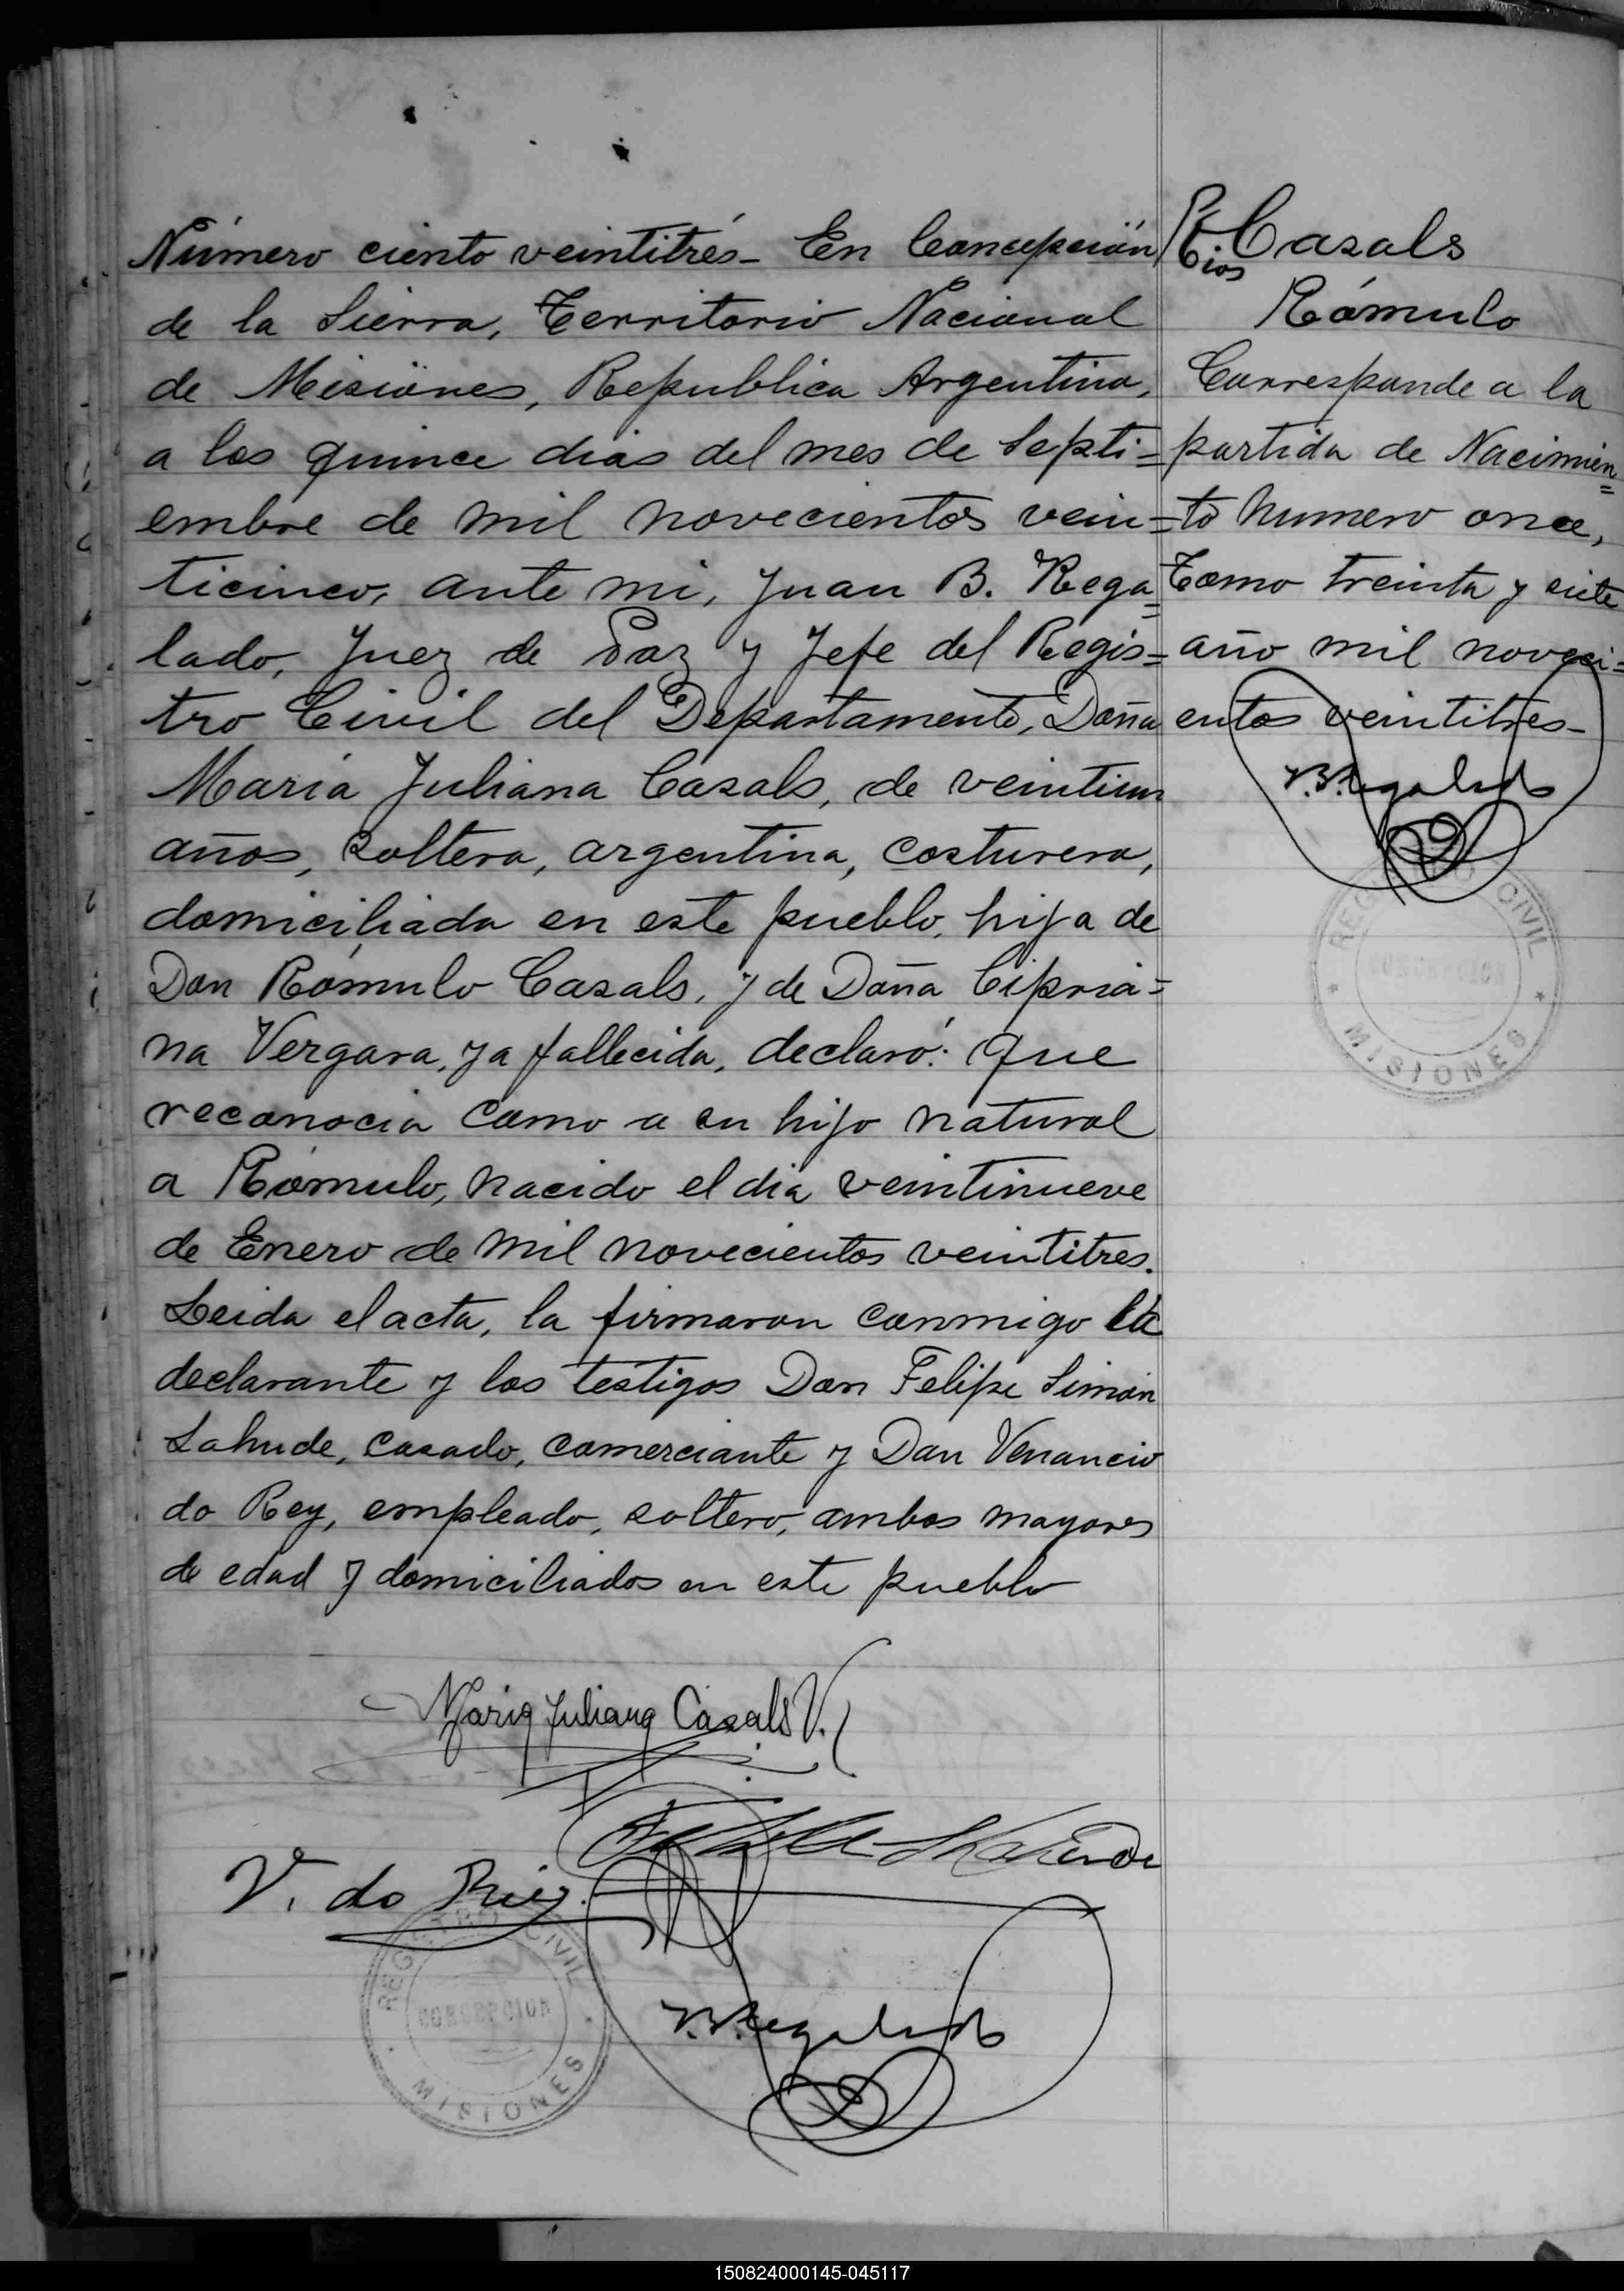 Número ciento veintitrés- En Concepción
de la Sierra, Territorio Nacional
de Misiones, Republica Argentina,
a los quince dias del mes de Septi=
embre de mil novecientos vein=
ticinco, ante mi, Juan B. Rega=
lado, Juez de Paz y Jefe del Regis=
tro Civil del Departamento, Doña
Maria Juliana Casals, de veintiun
años, soltera, argentina, costurera,
domiciliada en este pueblo, hija de
Don Rómulo Casals, y de Doña Cipria=
na Vergara, ya fallecida, declaró: Que
reconocia como a su hijo natural
a Rómulo, nacido el dia veintinueve
de Enero de mil novecientos veintitres.
Leida el acta, la firmaron conmigo la
declarante y los testigos Don Felipe Simón
Lahude, casado, comerciante y Don Venancio
do Rey, empleado, soltero, ambos mayores
de edad y domiciliados en este pueblo
Maria Juliana Casals V.
V. do Rey
REGISTRO CIVIL
CONCEPCION
MISIONES
J.B. Regalado
Casals
Rómulo
Corresponde a la
partida de Nacimien=
to número once,
Tomo treinta y siete
año mil noveci=
entos veintitres-
J.B. Regalado
REGISTRO CIVIL
CONCEPCION
MISIONES
150824000145-045117